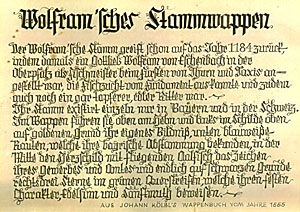 Wolfram'sches Stammwappen.
Der Wolfram'sche Stamm greift schon auf das Jahr 1184 zurück,
indem damals ein Gottlieb Wolfram von Eschenbach in der
Oberpfalz als Fischmeister beim Fürsten von Thurn und Taxis an-
gestellt war, die Fischzucht vom Fundament aus kannte und zudem
auch noch ein gar tapferer, edler Ritter war.
Ihr Stamm existiert einzeln nur in Bayern und in der Schweiz.
Im Wappen führen sie, oben am Helm und links im Schilde oben
auf goldenem Grund ihr eigenes Bildniß, unten blauweiße
Rauten, welche ihre bayrische Abstammung bekunden, in der
Mitte den Herzschild mit fliegendem Goldfisch das Zeichen
ihres Gewerbes und Amtes und endlich auf schwarzem Grunde
sechs drei Sterne im grünen Querstreifen, welche ihren festen
Charakter, Edelsinn und Sanftmut beweisen.
AUS JOHANN KÖLBL'S WAPPENBUCH VOM JAHRE 1866